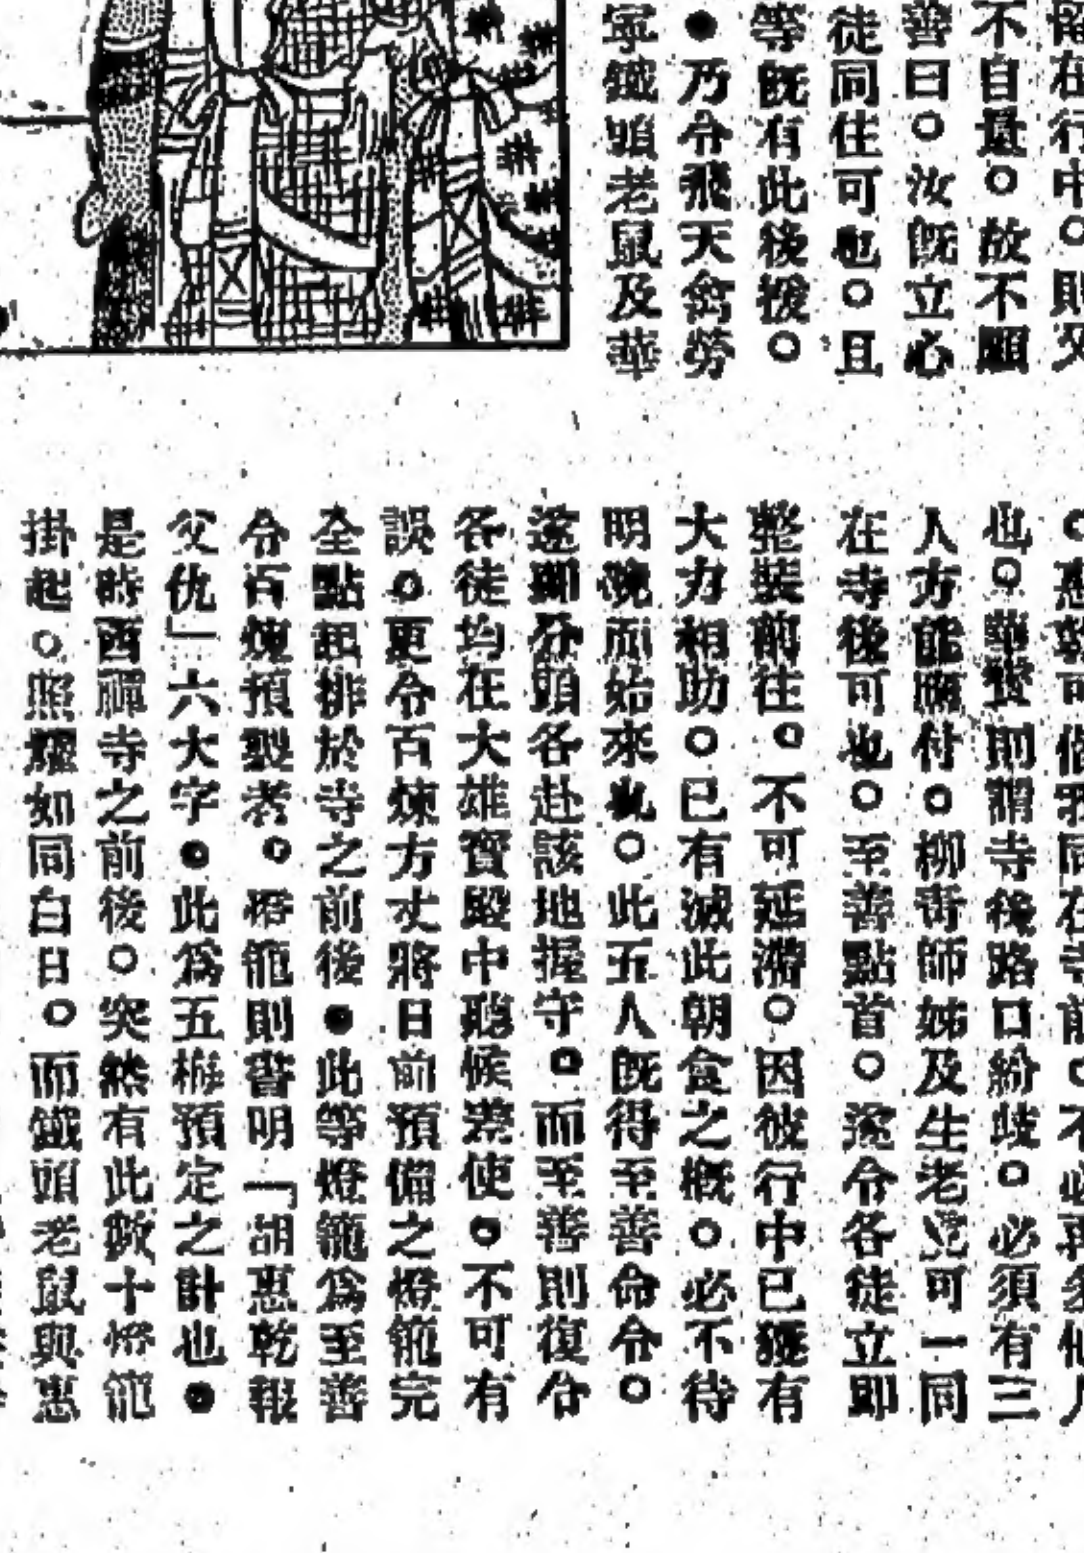 留在行中。則又
不自量。故不願
善曰。汝既立心
徒同住可也。且
等既有此後援。
。乃令飛天禽勞
寧鐵頭老鼠及華
。惠乾可偕我同在寺前。不必再多他人
也。華贊則謂寺後路口紛歧。必須有三
人方能應付。柳青師姊及生老虎可一同
在寺後可也。至善點首。遂令各徒立即
整裝前往。不可延滯。因彼行中已獲有
大力相助。已有滅此朝食之概。必不待
明晚而始來也。此五人既得至善命令。
遂即分頭各赴該地握守。而至善則復令
各徒均在大雄寶殿中聽候差使。不可有
誤。更令百煉方丈將日前預備之燈籠完
全點起排於寺之前後。此等燈籠為至善
令百煉預製者。燈籠則書明「胡惠乾報
父仇」六大字。此為五枚預定之計也。
是時西禪寺之前後。突然有此數十燈籠
掛起。照耀如同白日。而鐵頭老鼠與惠